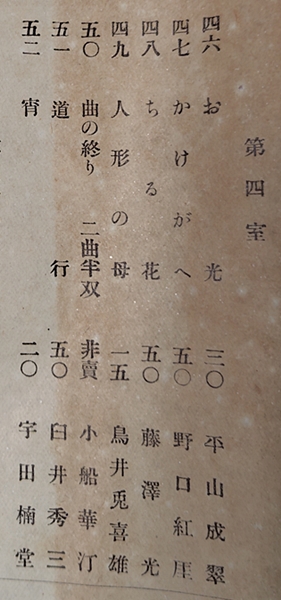 第四室
四六 お光 三〇 平山成翠
四七 かけるがへ 五〇 野口紅厓
四八 ちる花 五〇 藤澤光
四九 人形の母 一五 鳥井兎喜雄
五〇 曲の終り 二曲半双 非賣 小船華汀
五一 道行 五〇 臼井秀三
五二 宵 二〇 宇田楠堂